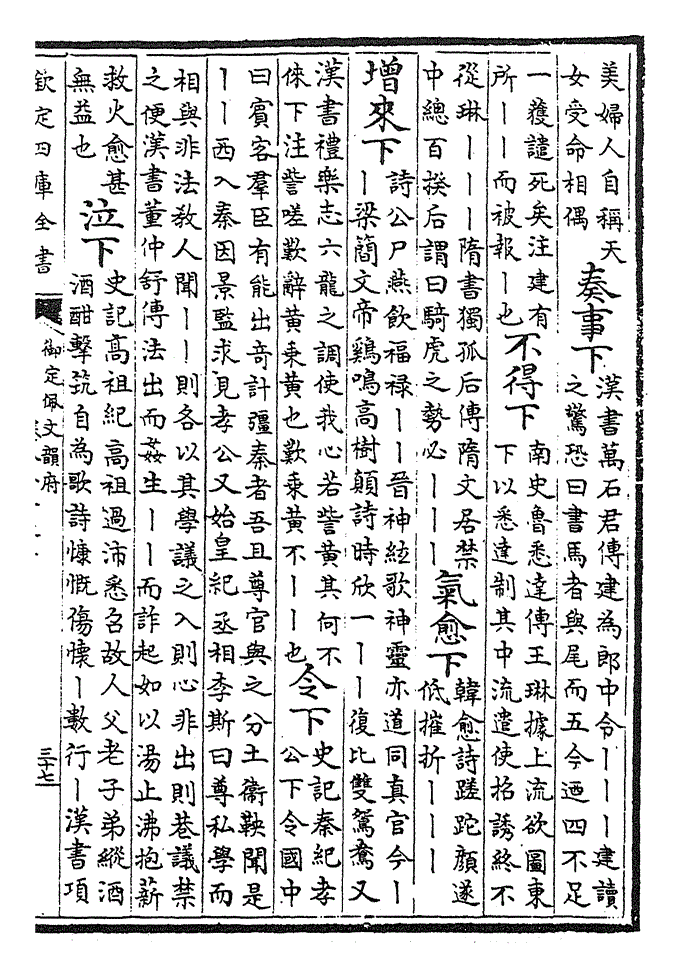 美婦人自稱天
女受命相偶
奏事下
漢書萬石君傳建為郎中令丨丨丨建讀
之驚恐曰書馬者與尾而五今迺四不足
一獲譴死矣注建有
所丨丨而被報丨也
不得下
南史魯悉達傳王琳據上流欲圖東
下以悉達制其中流遣使招誘終不
從琳丨丨丨隋書獨孤后傳隋文居禁
中總百揆后謂曰騎虎之勢必丨丨丨
氣愈下
韓愈詩蹉跎顔遂
低摧折丨丨丨
增來下
詩公尸燕飲福禄丨丨晉神絃歌神靈亦道同真官今丨
丨梁簡文帝鷄鳴高樹顛詩時欣一丨丨復比雙鴛鴦又
漢書禮樂志六龍之調使我心若訾黃其何不
倈下注訾嗟歎辭黃乗黃也歎乗黃不丨丨也
令下
史記秦紀孝
公下令國中
曰賓客羣臣有能出奇計彊秦者吾且尊官與之分土衞鞅聞是
丨丨西入秦因景監求見孝公又始皇紀丞相李斯曰尊私學而
相與非法教人聞丨丨則各以其學議之入則心非出則巷議禁
之便漢書董仲舒傳法出而姦生丨丨而詐起如以湯止沸抱薪
救火愈甚
無益也
泣下
史記高祖紀高祖過沛悉召故人父老子弟縱酒
酒酣擊筑自為歌詩慷慨傷懷丨數行丨漢書項
欽定四庫全書
御定佩文韻府
三十七